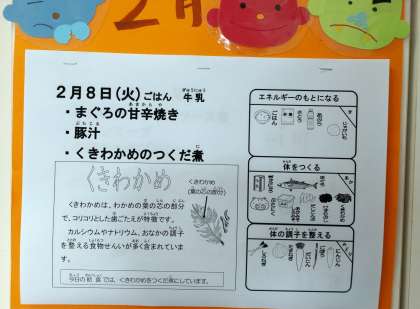 2月
2月8日(火)ごはん 牛乳
・まぐろの甘辛焼き
・豚汁
・くきわかめのつくだ煮
くきわかめ
くきわかめ
(葉の芯の部分)
くきわかめは、わかめの葉の芯の部分
で、コリコリとした歯ごたえが特徴です。
カルシウムやナトリウム、おなかの調子
を整える食物せんいが多く含まれていま
す。
今日の給食では、くきわかめをつくだ煮にしています。
エネルギーのもとになる
ごはん
体をつくる
体の調子を整える